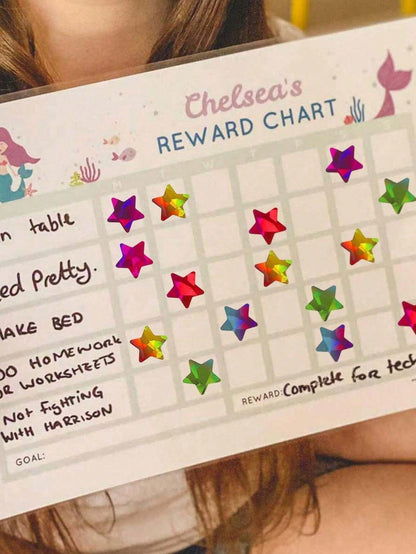 Chelsea's
REWARD CHART
M T W T F S
n table
ed Pretty.
MAKE BED
DO HOMEWORK
OR WORKSHEETS
Not FIGHTING
WITH HARRISON
REWARD: Complete for tech
GOAL: